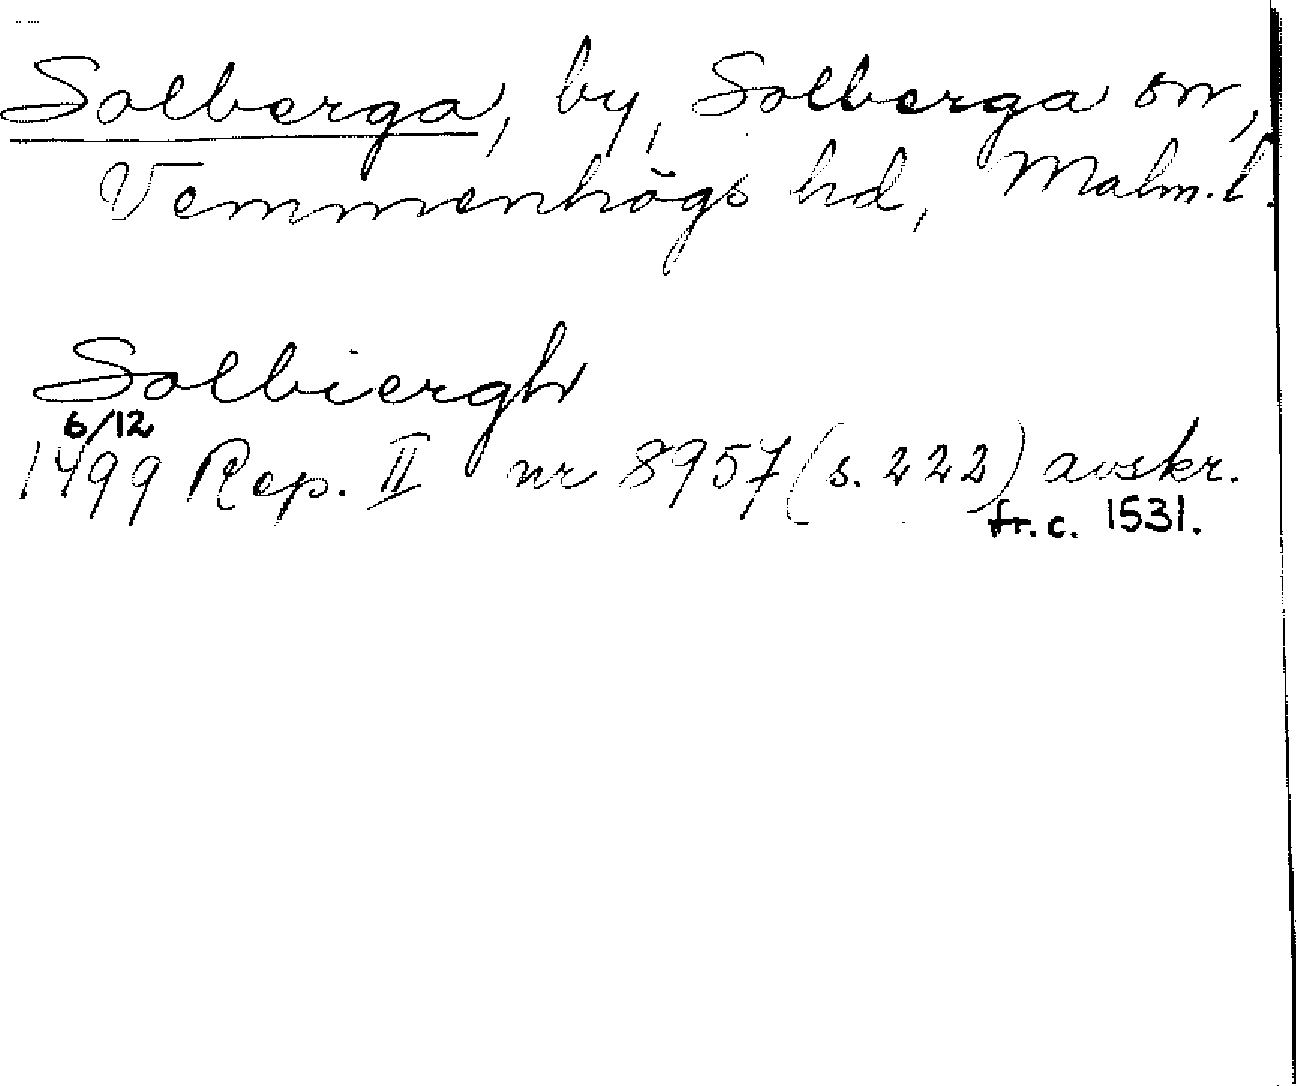 Solberga, by, Solberga sn,
Vemmenhögs hd, Malm.l.
Solbiergh
6/12
1499 Rep. II nr 8957 (s. 222) avskr.
fr. c. 1531.